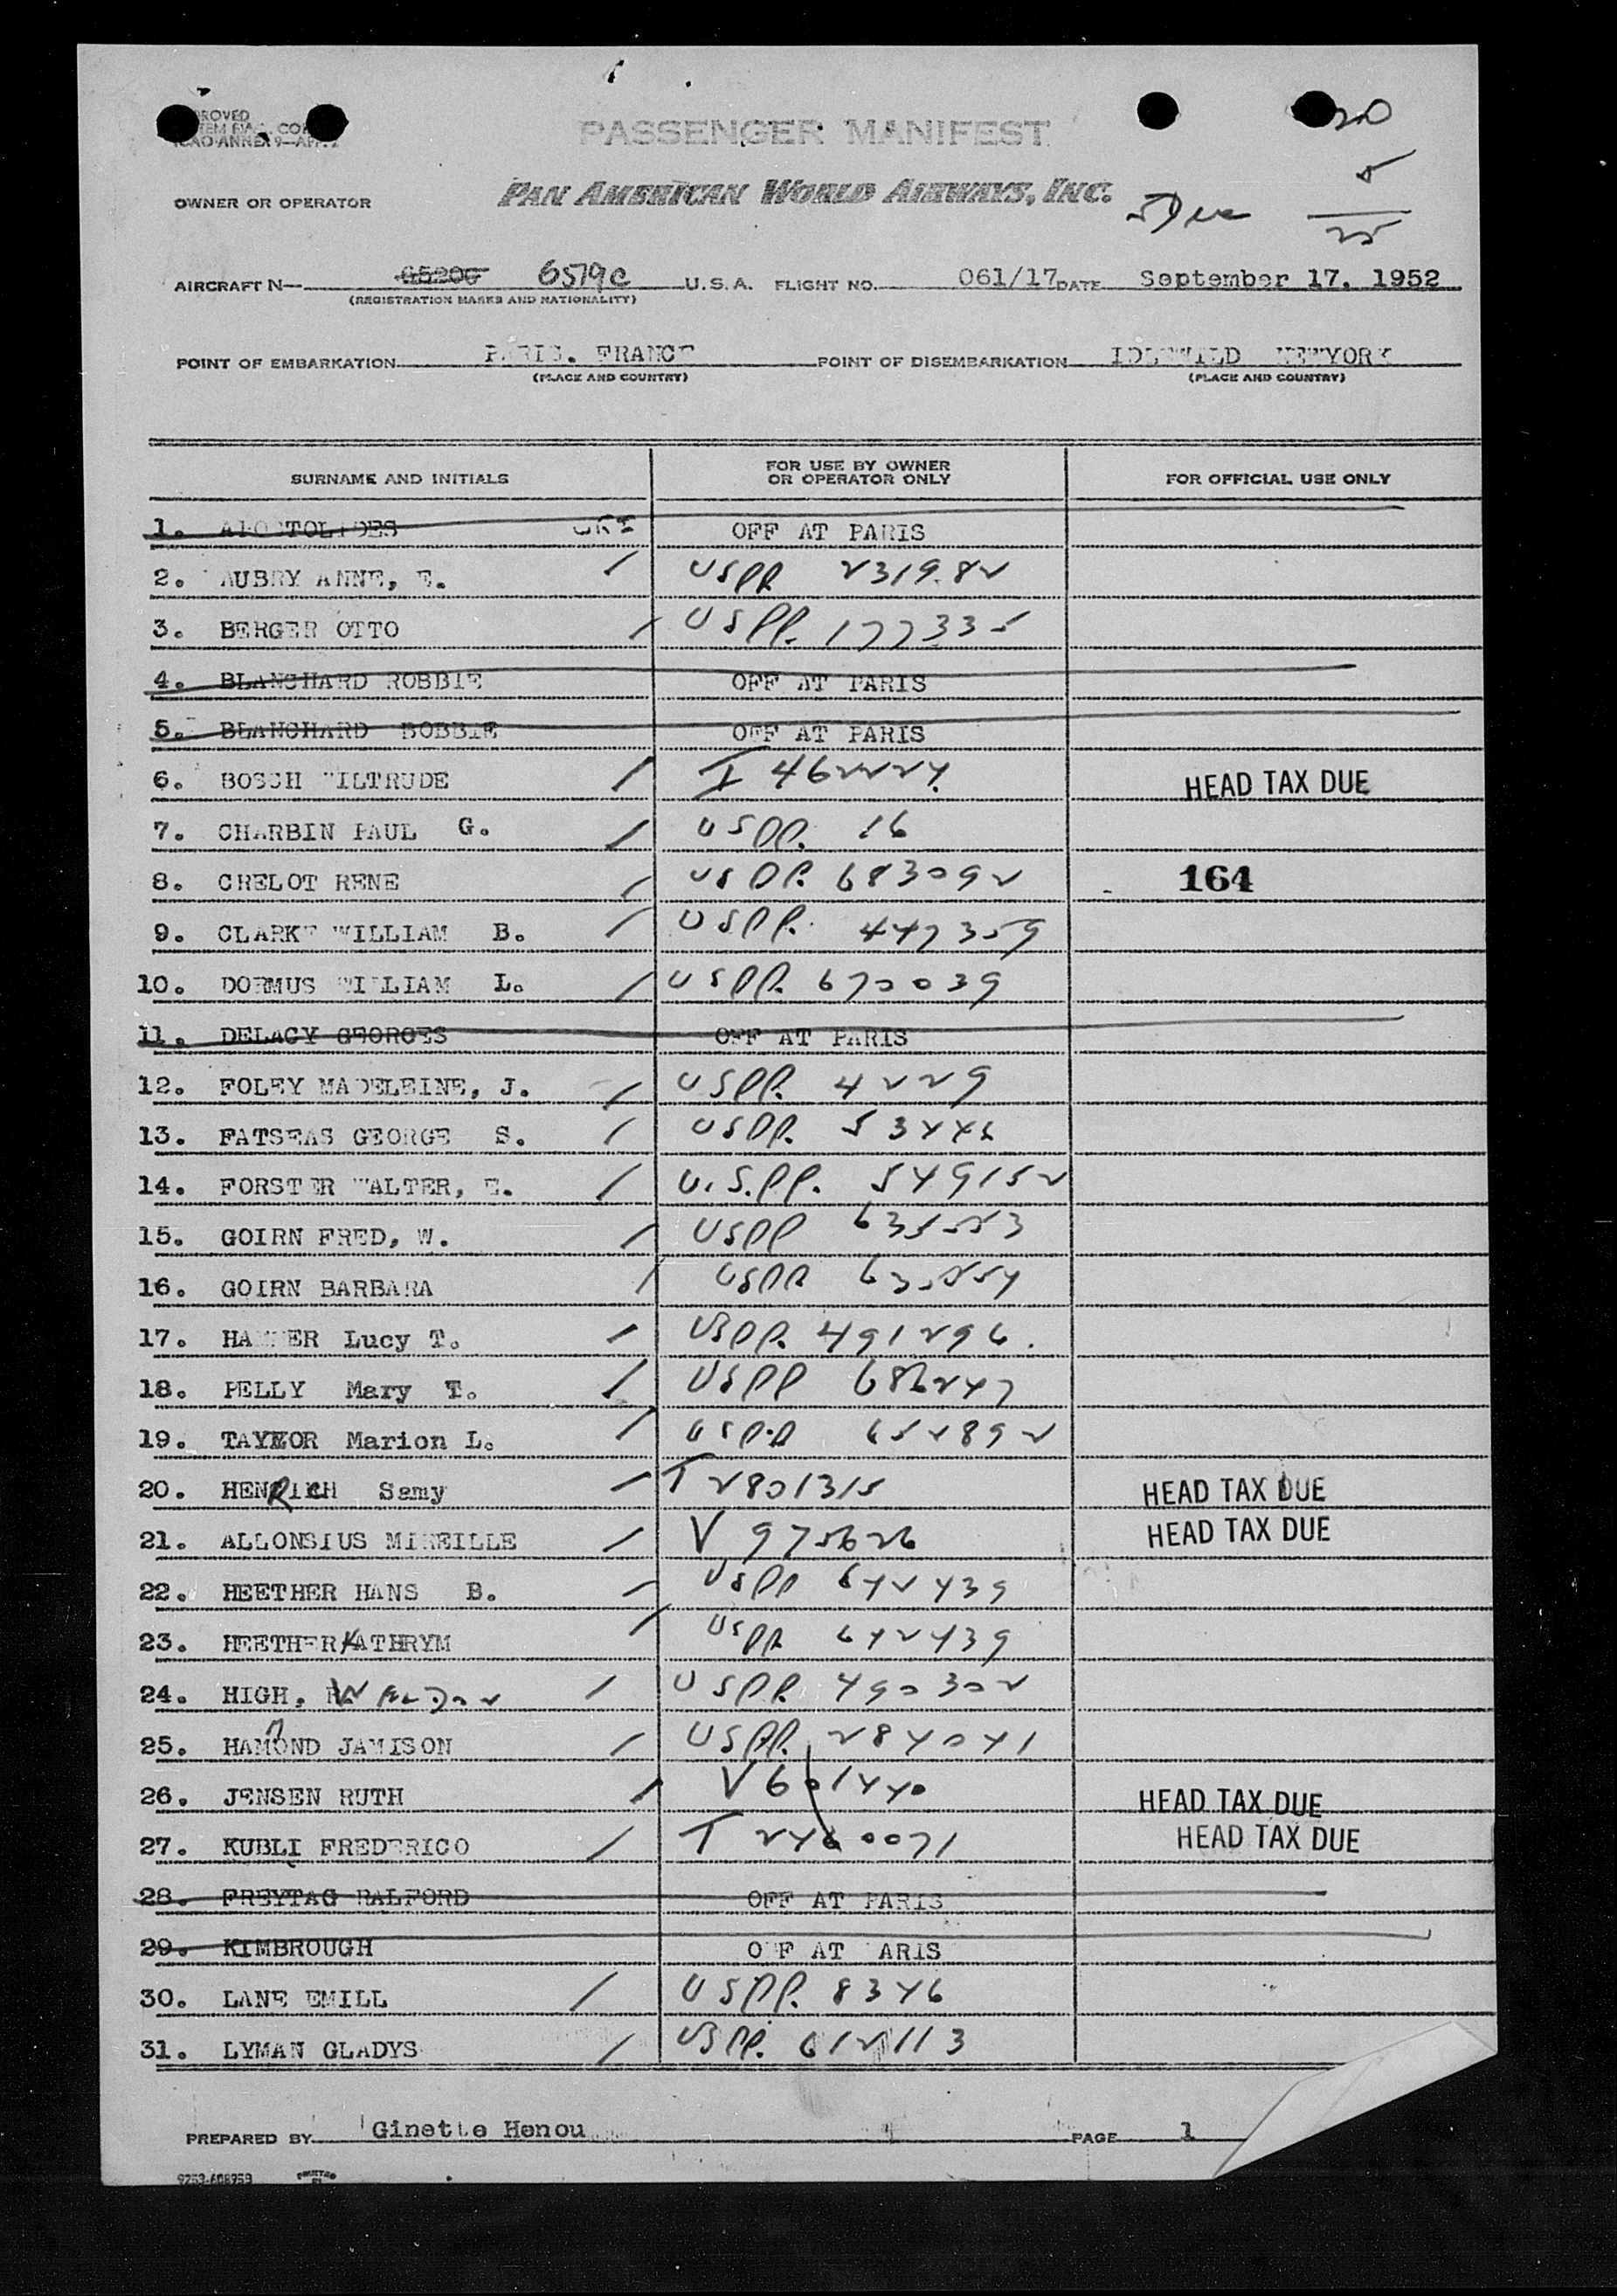 PASSENGER MANIFEST
20
OWNER OR OPERATOR PAN AMERICAN WORLD AIRWAYS, INC.
5
25
AIRCRAFT N— 6520C 6519C U.S.A. FLIGHT NO. 061/17 DATE September 17, 1952
(REGISTRATION MARKS AND NATIONALITY)
POINT OF EMBARKATION PARIS. FRANCE POINT OF DISEMBARKATION IDLEWILD NEWYORK
(PLACE AND COUNTRY) (PLACE AND COUNTRY)
SURNAME AND INITIALS FOR USE BY OWNER OR OPERATOR ONLY FOR OFFICIAL USE ONLY
1. APOSTOLIDES OFF AT PARIS
2. AUBRY ANNE, E. USPP 231982
3. BERGER OTTO USPP. 177335
4. BLANCHARD ROBBIE OFF AT PARIS
5. BLANCHARD BOBBIE OFF AT PARIS
6. BOSCH WILTRUDE I 462224 HEAD TAX DUE
7. CHARBIN PAUL G. USPP. 16
8. CHELOT RENE USPP. 683092 164
9. CLARKE WILLIAM B. USPP. 447359
10. DORMUS WILLIAM L. USPP. 670039
11. DELACY GEORGES OFF AT PARIS
12. FOLEY MADELEINE, J. USPP. 4229
13. FATSEAS GEORGE S. USPP.
14. FORSTER WALTER, E. U.S.PP. 549152
15. GOIRN FRED, W. USPP
16. GOIRN BARBARA USPP
17. HAMMER Lucy T. USPP. 491296.
18. PELLY Mary T. USPP 686247
19. TAYLOR Marion L. USPP 652892
20. HENRICH Samy T 2801315 HEAD TAX DUE
21. ALLONSIUS MIREILLE V 975626 HEAD TAX DUE
22. HEETHER HANS B. USPP 642439
23. HEETHER KATHRYM USPP 642439
24. HIGH, WELDON USPP. 490302
25. HAMMOND JAMISON USPP. 284041
26. JENSEN RUTH V 601440 HEAD TAX DUE
27. KUBLI FREDERICO T 2460071 HEAD TAX DUE
28. FREYTAG HALFORD OFF AT PARIS
29. KIMBROUGH OFF AT PARIS
30. LANE EMILL USPP. 8346
31. LYMAN GLADYS USPP. 612113
PREPARED BY Ginette Henou PAGE 1